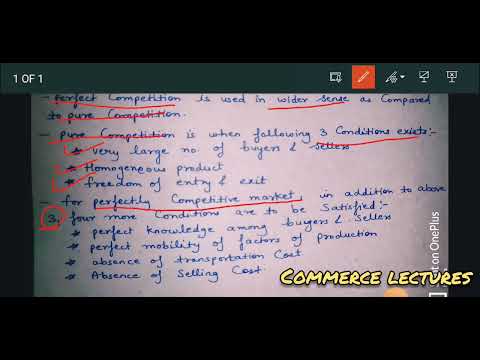 1 OF 1
- Perfect Competition is used in wider sense as Compared
to pure Competition.
- Pure Competition is when following 3 Conditions exists:-
* very large no. of buyers & sellers
* Homogeneous product
* freedom of entry & exit
- for perfectly Competitive market in addition to above
3, four more Conditions are to be Satisfied:-
* perfect knowledge among buyers & sellers
* perfect mobility of factors of production
* absence of transportation Cost
* Absence of Selling Cost
COMMERCE LECTURES
on OnePlus